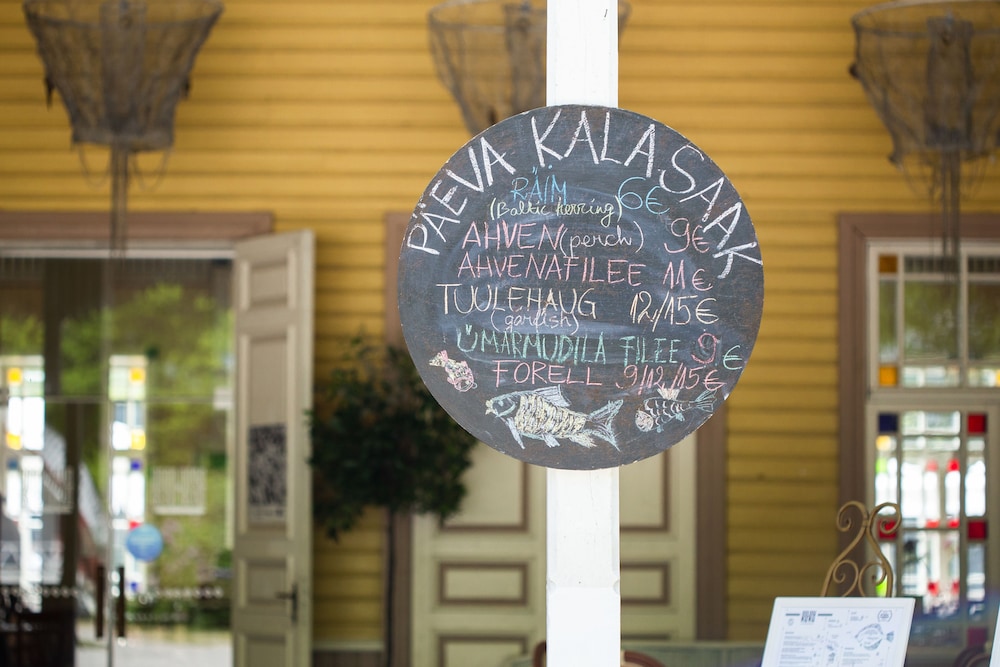 PÄEVA KALASAAK
RÄIM 6€
(Baltic herring)
AHVEN (perch) 9€
AHVENAFILEE 11€
TUULEHAUG 12/15€
(garfish)
ÜMARMUDILA FILEE 9€
FORELL 9/12/15€